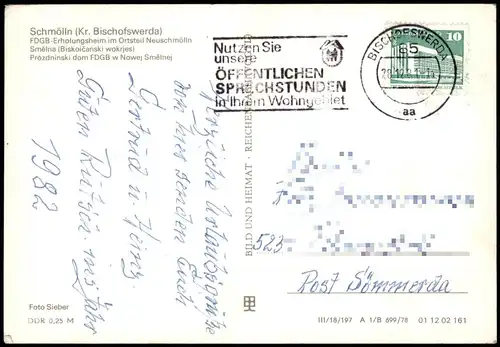 Schmölln (Kr. Bischofswerda)
FDGB-Erholungsheim im Ortsteil Neuschmölln
Smělna (Biskoičanski wokrjes)
Prózdninski dom FDGB w Nowej Smělnej
Nutzen Sie
unsere
ÖFFENTLICHEN
SPRECHSTUNDEN
in Ihrem Wohngebiet
BISCHOFSWERDA
85
aa
10
Herzliche Urlaubsgrüße
von hier senden Euch
Gertrud u. Heinz.
Guten Rutsch ins Jahr
1982
BILD UND HEIMAT · REICHENBACH
523
Post Sömmerda
Foto Sieber
DDR 0,25 M
III/18/197 A 1/B 699/78 01 12 02 161